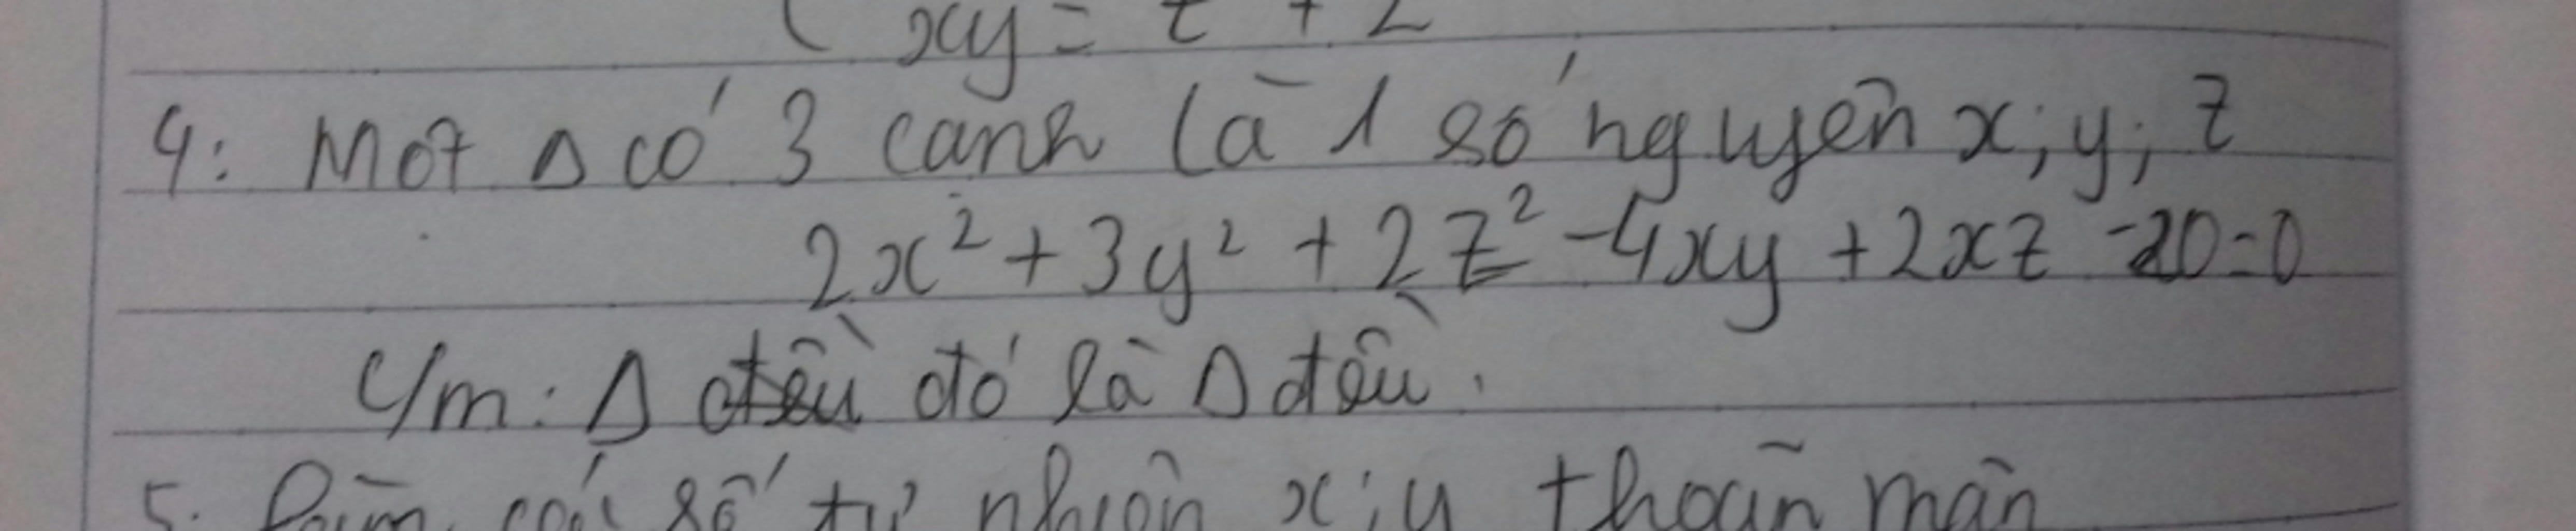 xy = z + 2
4: Một Δ có 3 cạnh là 1 số nguyên x; y; z
2x² + 3y² + 2z² - 4xy + 2xz - 20 = 0
C/m: Δ đều đó là Δ đều.
5. các số tự nhiên x; y thoả mãn